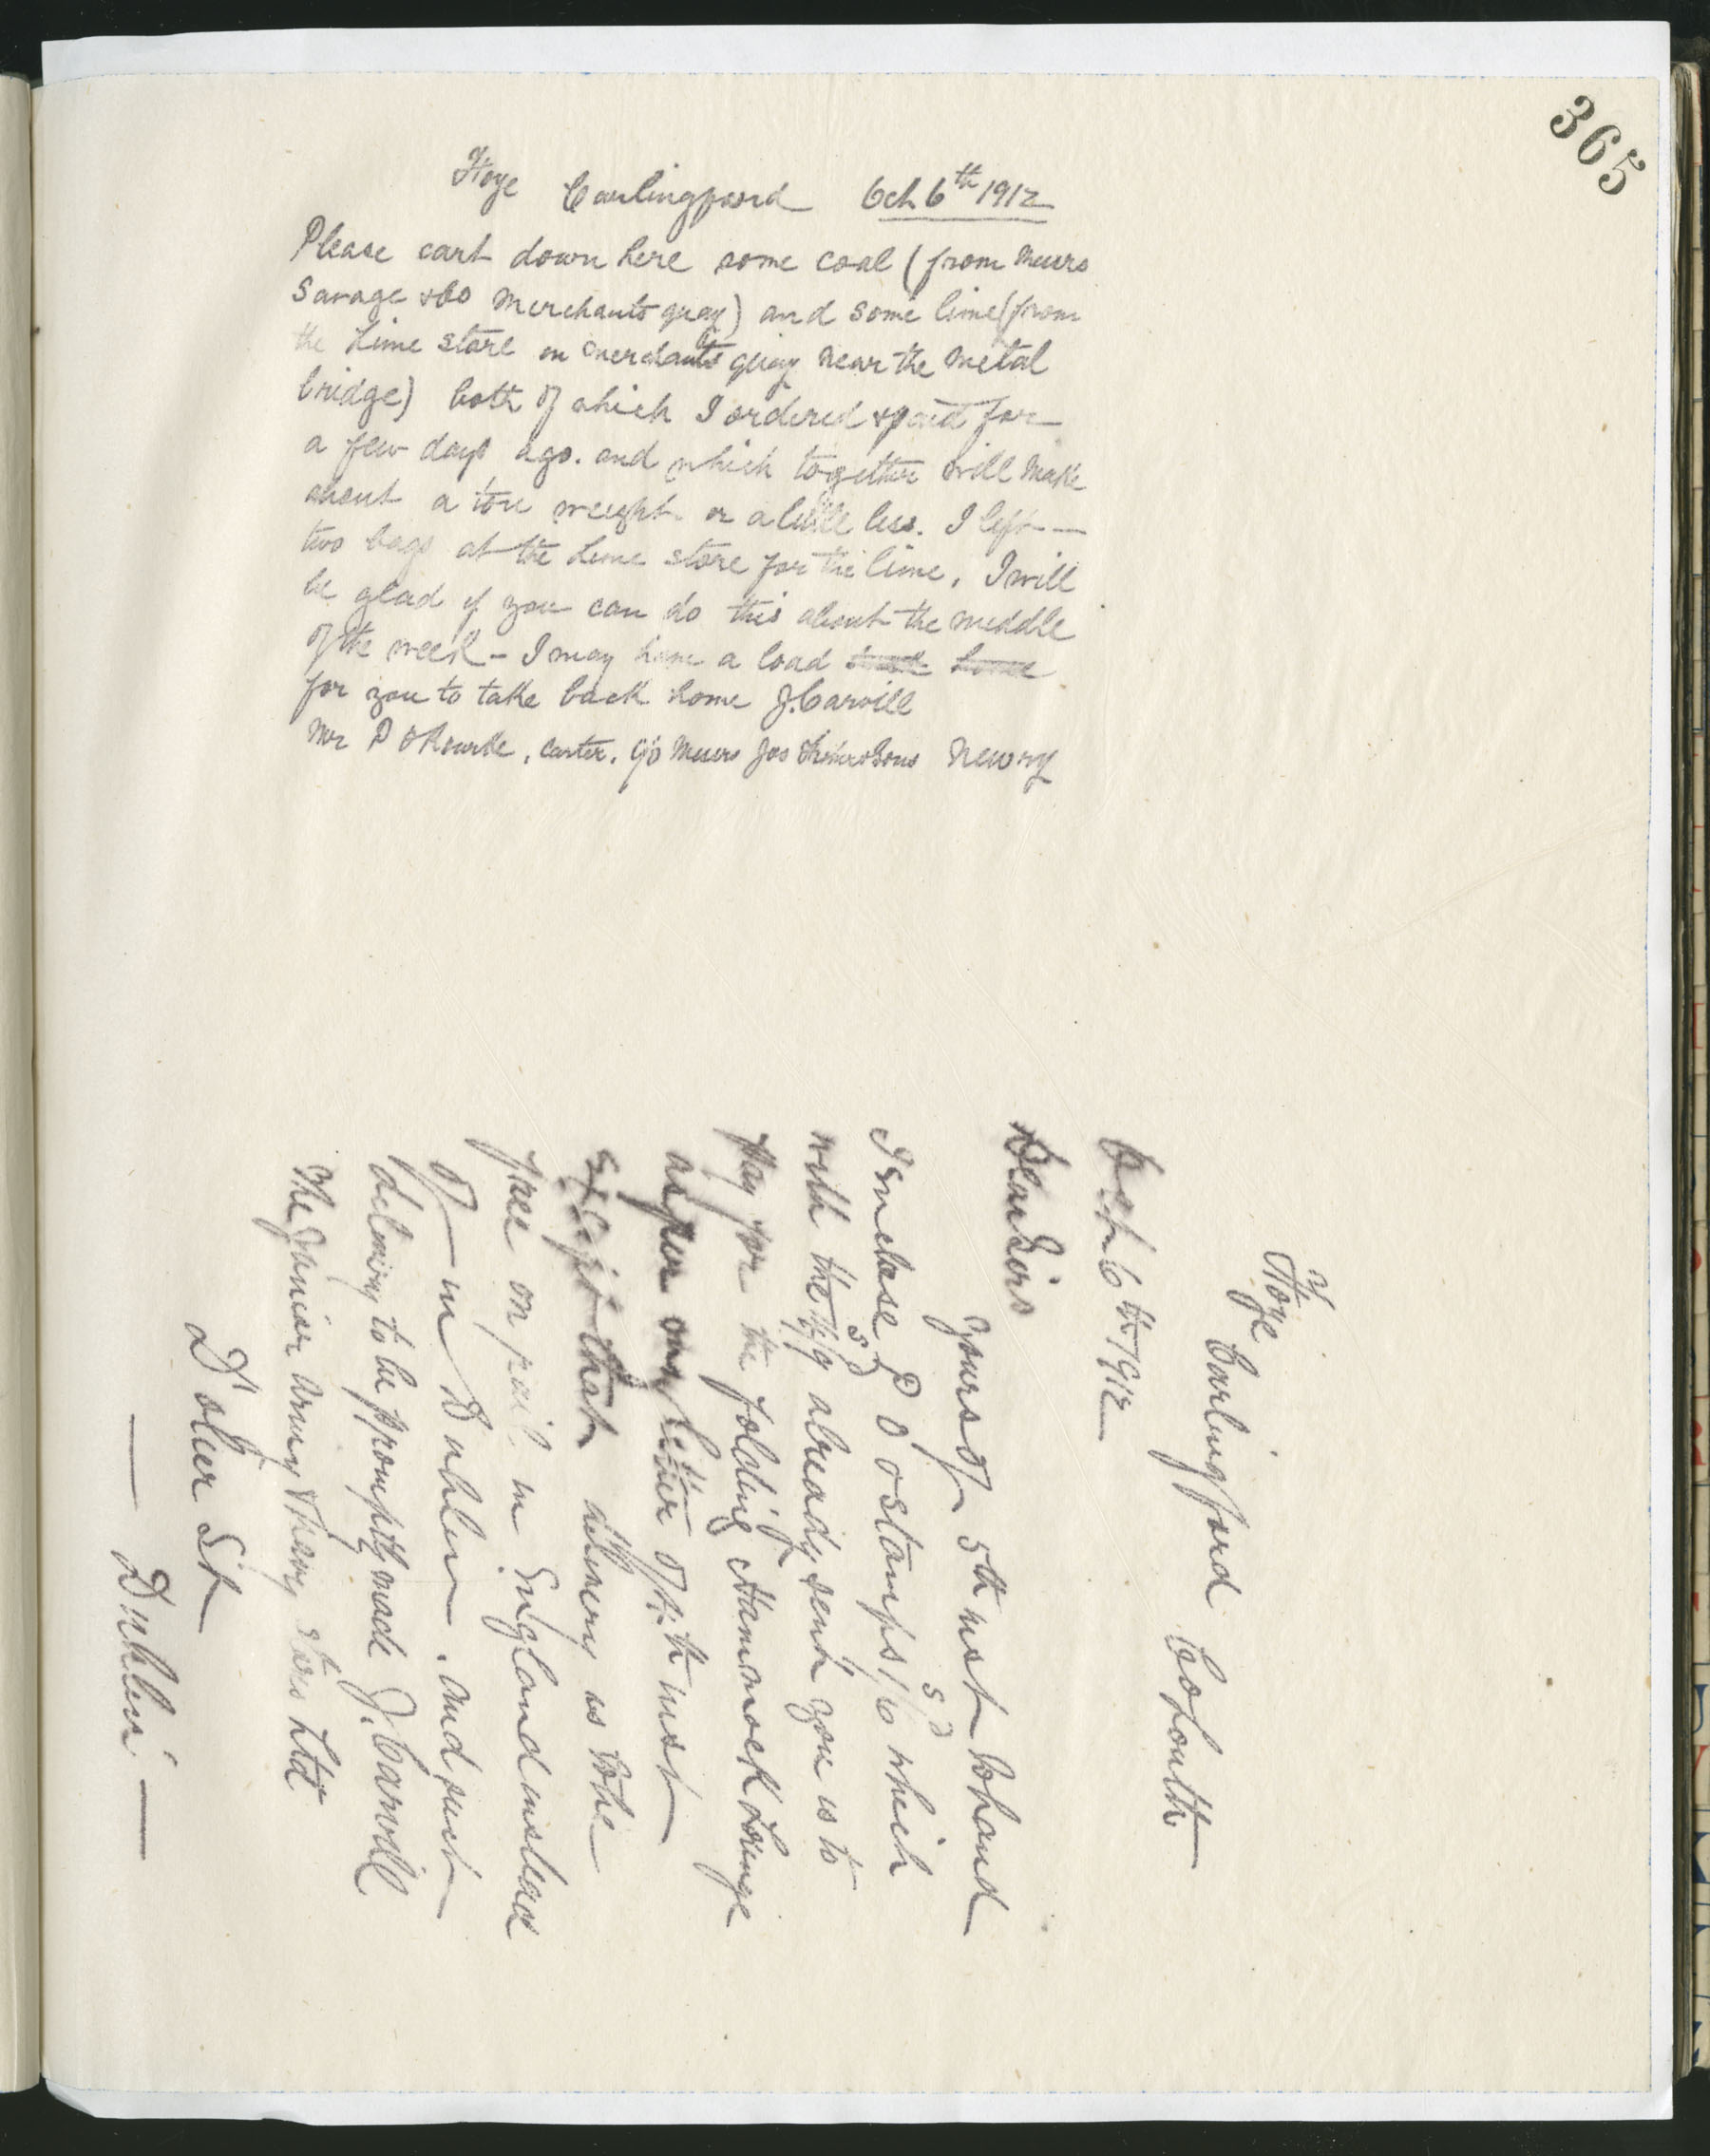 365
Hoye Carlingford Oct 6th 1912
Please cart down here some coal (from Messrs
Savage & Co Merchants quay) and some lime (from
the Lime store on Merchants quay near the Metal
bridge) both of which I ordered & paid for
a few days ago. and which together will make
about a ton weight or a little less. I left
two bags at the Lime store for the lime, I will
be glad if you can do this about the middle
of the week - I may have a load
for you to take back home J. Carvill
Mr P O Rourke, Carter, c/o Messrs Jos & Sons Newry
Hoye
Carlingford Co Louth
Oct 6th 1912
Dear Sirs
Yours of 5th inst to hand
I enclose P O O stamps 1/6 which
with the already sent you is to
pay for the folding Hammock Lounge
as per my letter of inst
except that delivery is to be
free on rail in England instead
of in Dublin. and such
delivery to be promptly made J. Carvill
The Junior Army & Navy Stores Ltd
D'olier St
Dublin